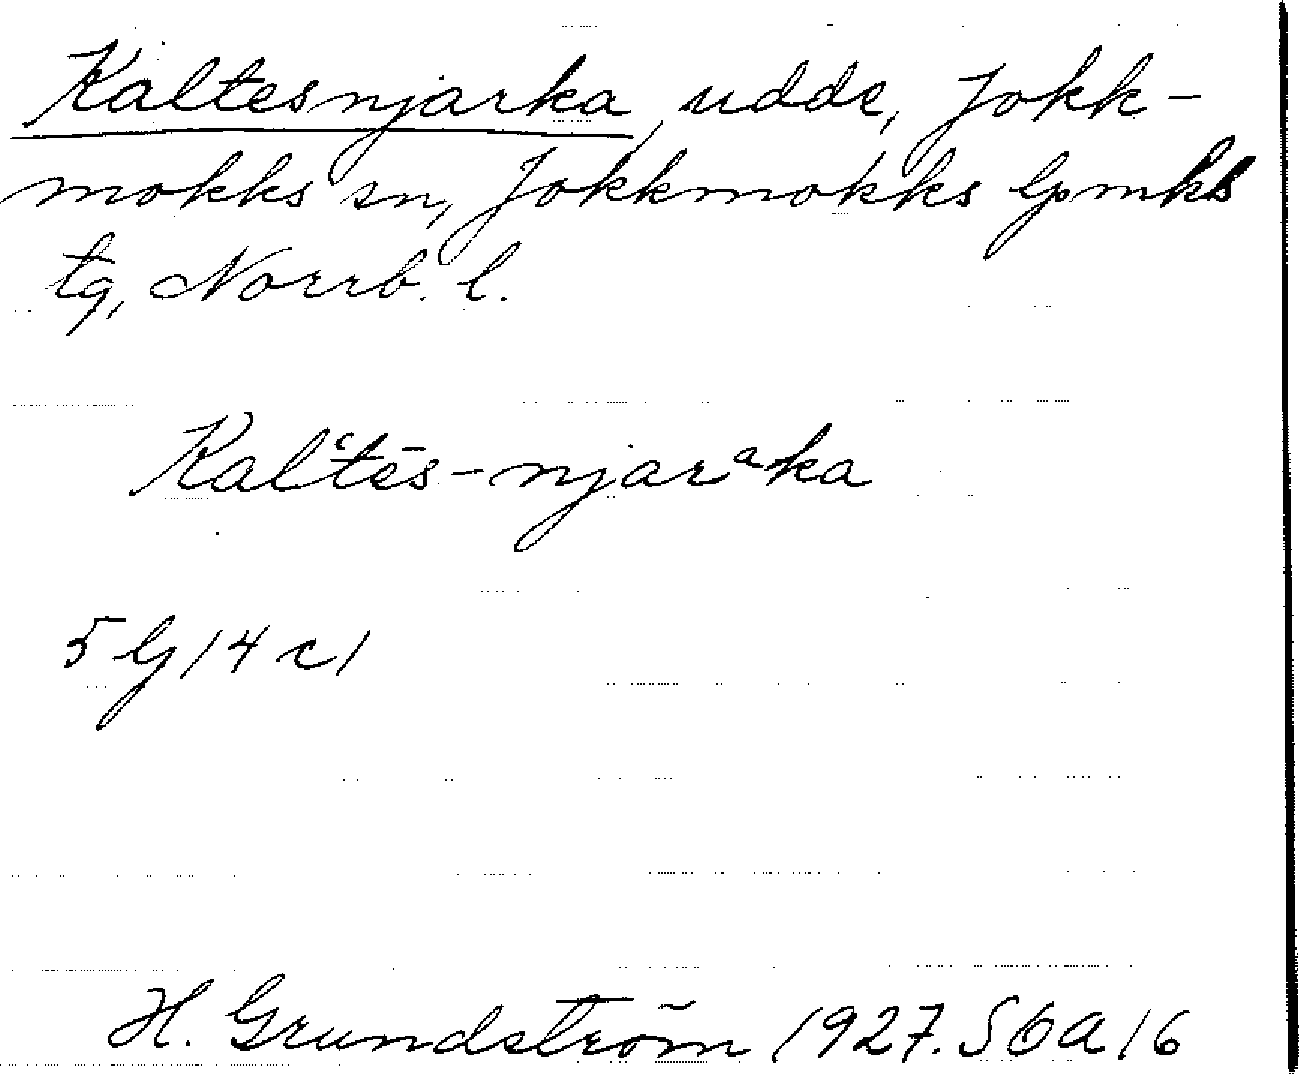 Kaltesnjarka, udde, Jokk-
mokks sn, Jokkmokks lpmks
tg, Norrb. l.
Kalʿtēs-njarᵃka
5 G 14 c 1
H. Grundström 1927. SOA 16